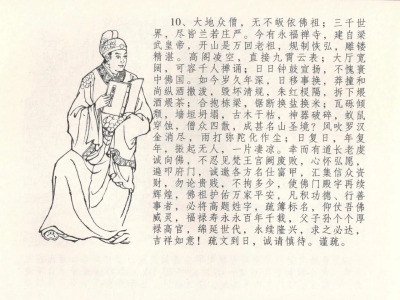 10、大地众僧，无不皈依佛祖；三千世
界，尽皆兰若庄严。今有永福禅寺，建自梁
武皇帝，开山是万回老祖，规制恢弘，雕镂
精湛。高阁凌空，直接九霄云表；大厅宽
阔，可容千人禅诵；日日钟鼓宣扬，不愧寰
中佛国。如今岁久年深，日移事换，莽撞和
尚纵酒撒泼，毁坏清规，朱红棂隔，拆下煨
酒煨茶；合抱栋梁，锯断换盐换米；瓦砾倾
颓，墙垣坍塌，古木千枯，神器破碎，蚁鼠
穿蚀，僧众四散，成甚名山圣境？风吹罗汉
金消尽，雨打弥陀化作尘；日复日，年复
年，振起无人，一片凄凉。幸而有道长老虔
诚向佛，不忍见梵王宫阙废败，心怀弘愿，
遍叩府门，诚邀各方名仕富甲，汇集信众资
财，勿论贵贱，不拘多少，使佛门殿宇再续
辉煌，佛祖护佑万家平安，凡积功德、行善
事者，必将高题姓字，疏簿标名，仰仗吾佛
威灵，福禄寿永永百年千载，父子孙个个厚
禄高官，绵延世代，永续隆兴，求之必达，
吉祥如意！疏文到日，诚请慎待。谨疏。